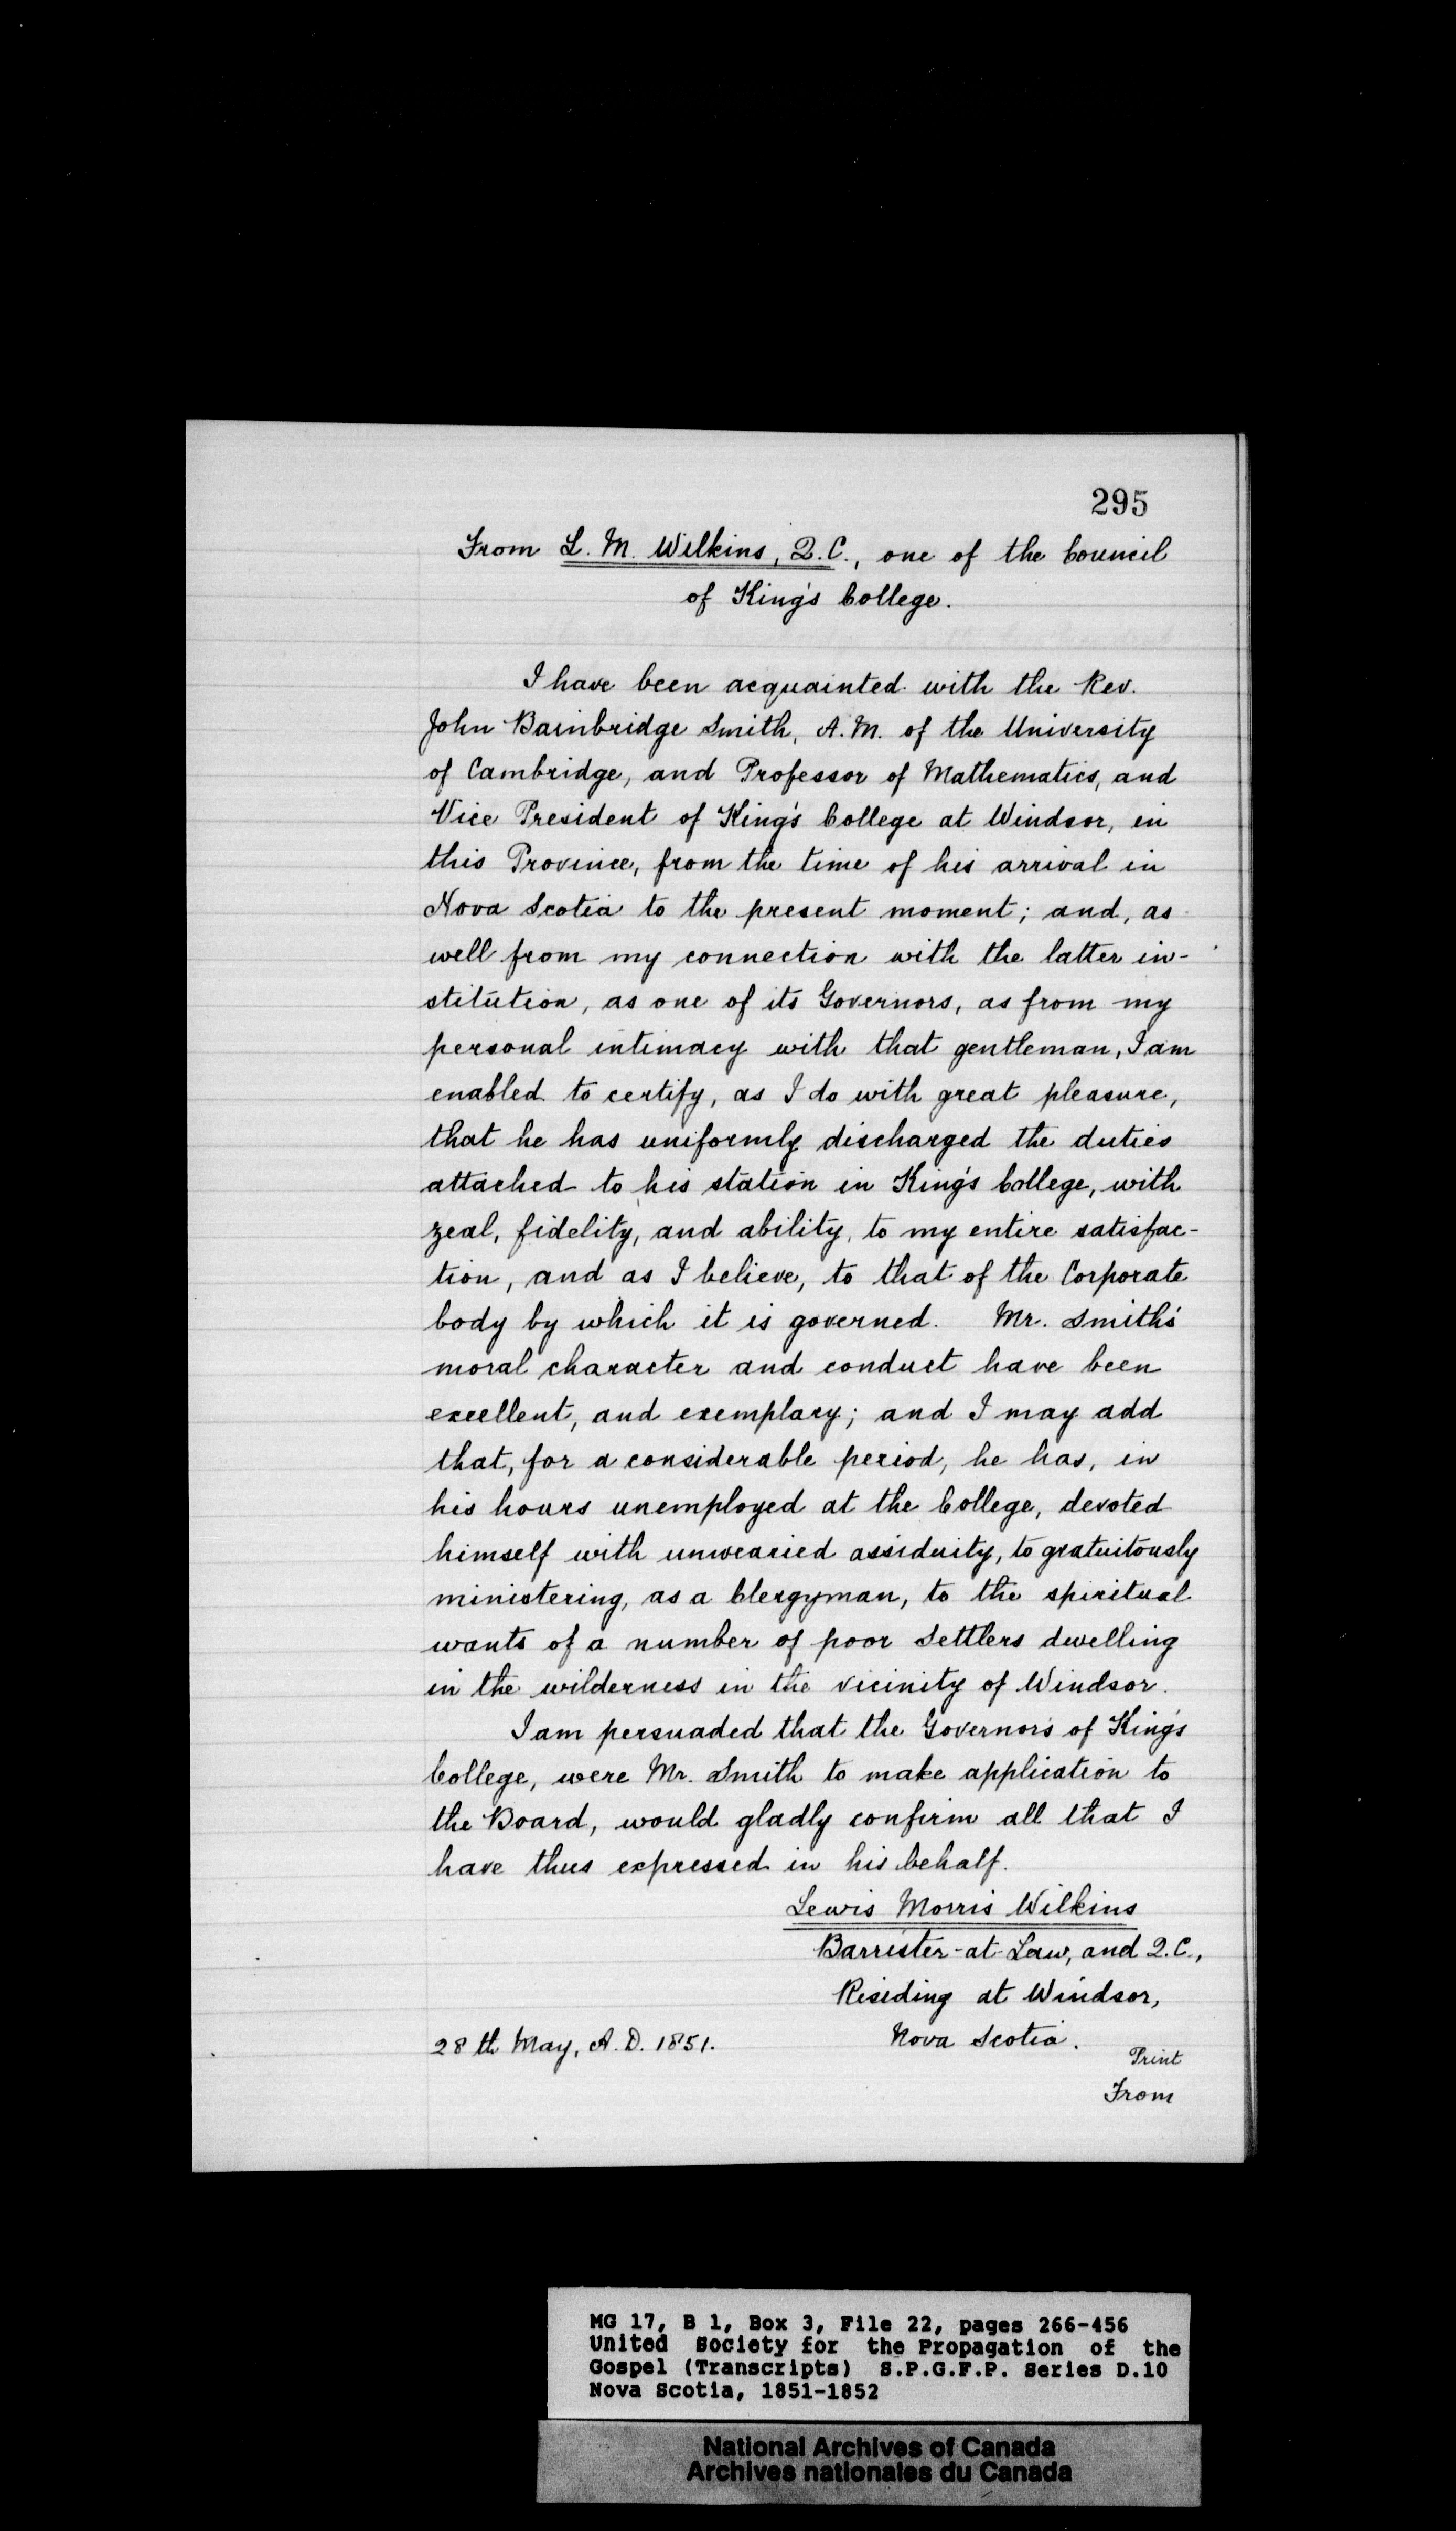 295
From L. M. Wilkins, Q.C., one of the Council
of King's College.
I have been acquainted with the Rev.
John Bainbridge Smith, A.M. of the University
of Cambridge, and Professor of Mathematics, and
Vice President of King's College at Windsor, in
this Province, from the time of his arrival in
Nova Scotia to the present moment; and, as
well from my connection with the latter in-
stitution, as one of its Governors, as from my
personal intimacy with that gentleman, I am
enabled to certify, as I do with great pleasure,
that he has uniformly discharged the duties
attached to his station in King's College, with
zeal, fidelity, and ability, to my entire satisfac-
tion, and as I believe, to that of the Corporate
body by which it is governed. Mr. Smith's
moral character and conduct have been
excellent, and exemplary; and I may add
that, for a considerable period, he has, in
his hours unemployed at the College, devoted
himself with unwearied assiduity, to gratuitously
ministering, as a Clergyman, to the spiritual
wants of a number of poor Settlers dwelling
in the wilderness in the vicinity of Windsor.
I am persuaded that the Governors of King's
College, were Mr. Smith to make application to
the Board, would gladly confirm all that I
have thus expressed in his behalf.
Lewis Morris Wilkins
Barrister-at-Law, and Q.C.,
Residing at Windsor,
Nova Scotia.
28th May, A.D. 1851.
Print
From
MG 17, B 1, Box 3, File 22, pages 266-456
United Society for the Propagation of the
Gospel (Transcripts) S.P.G.F.P. Series D.10
Nova Scotia, 1851-1852
National Archives of Canada
Archives nationales du Canada